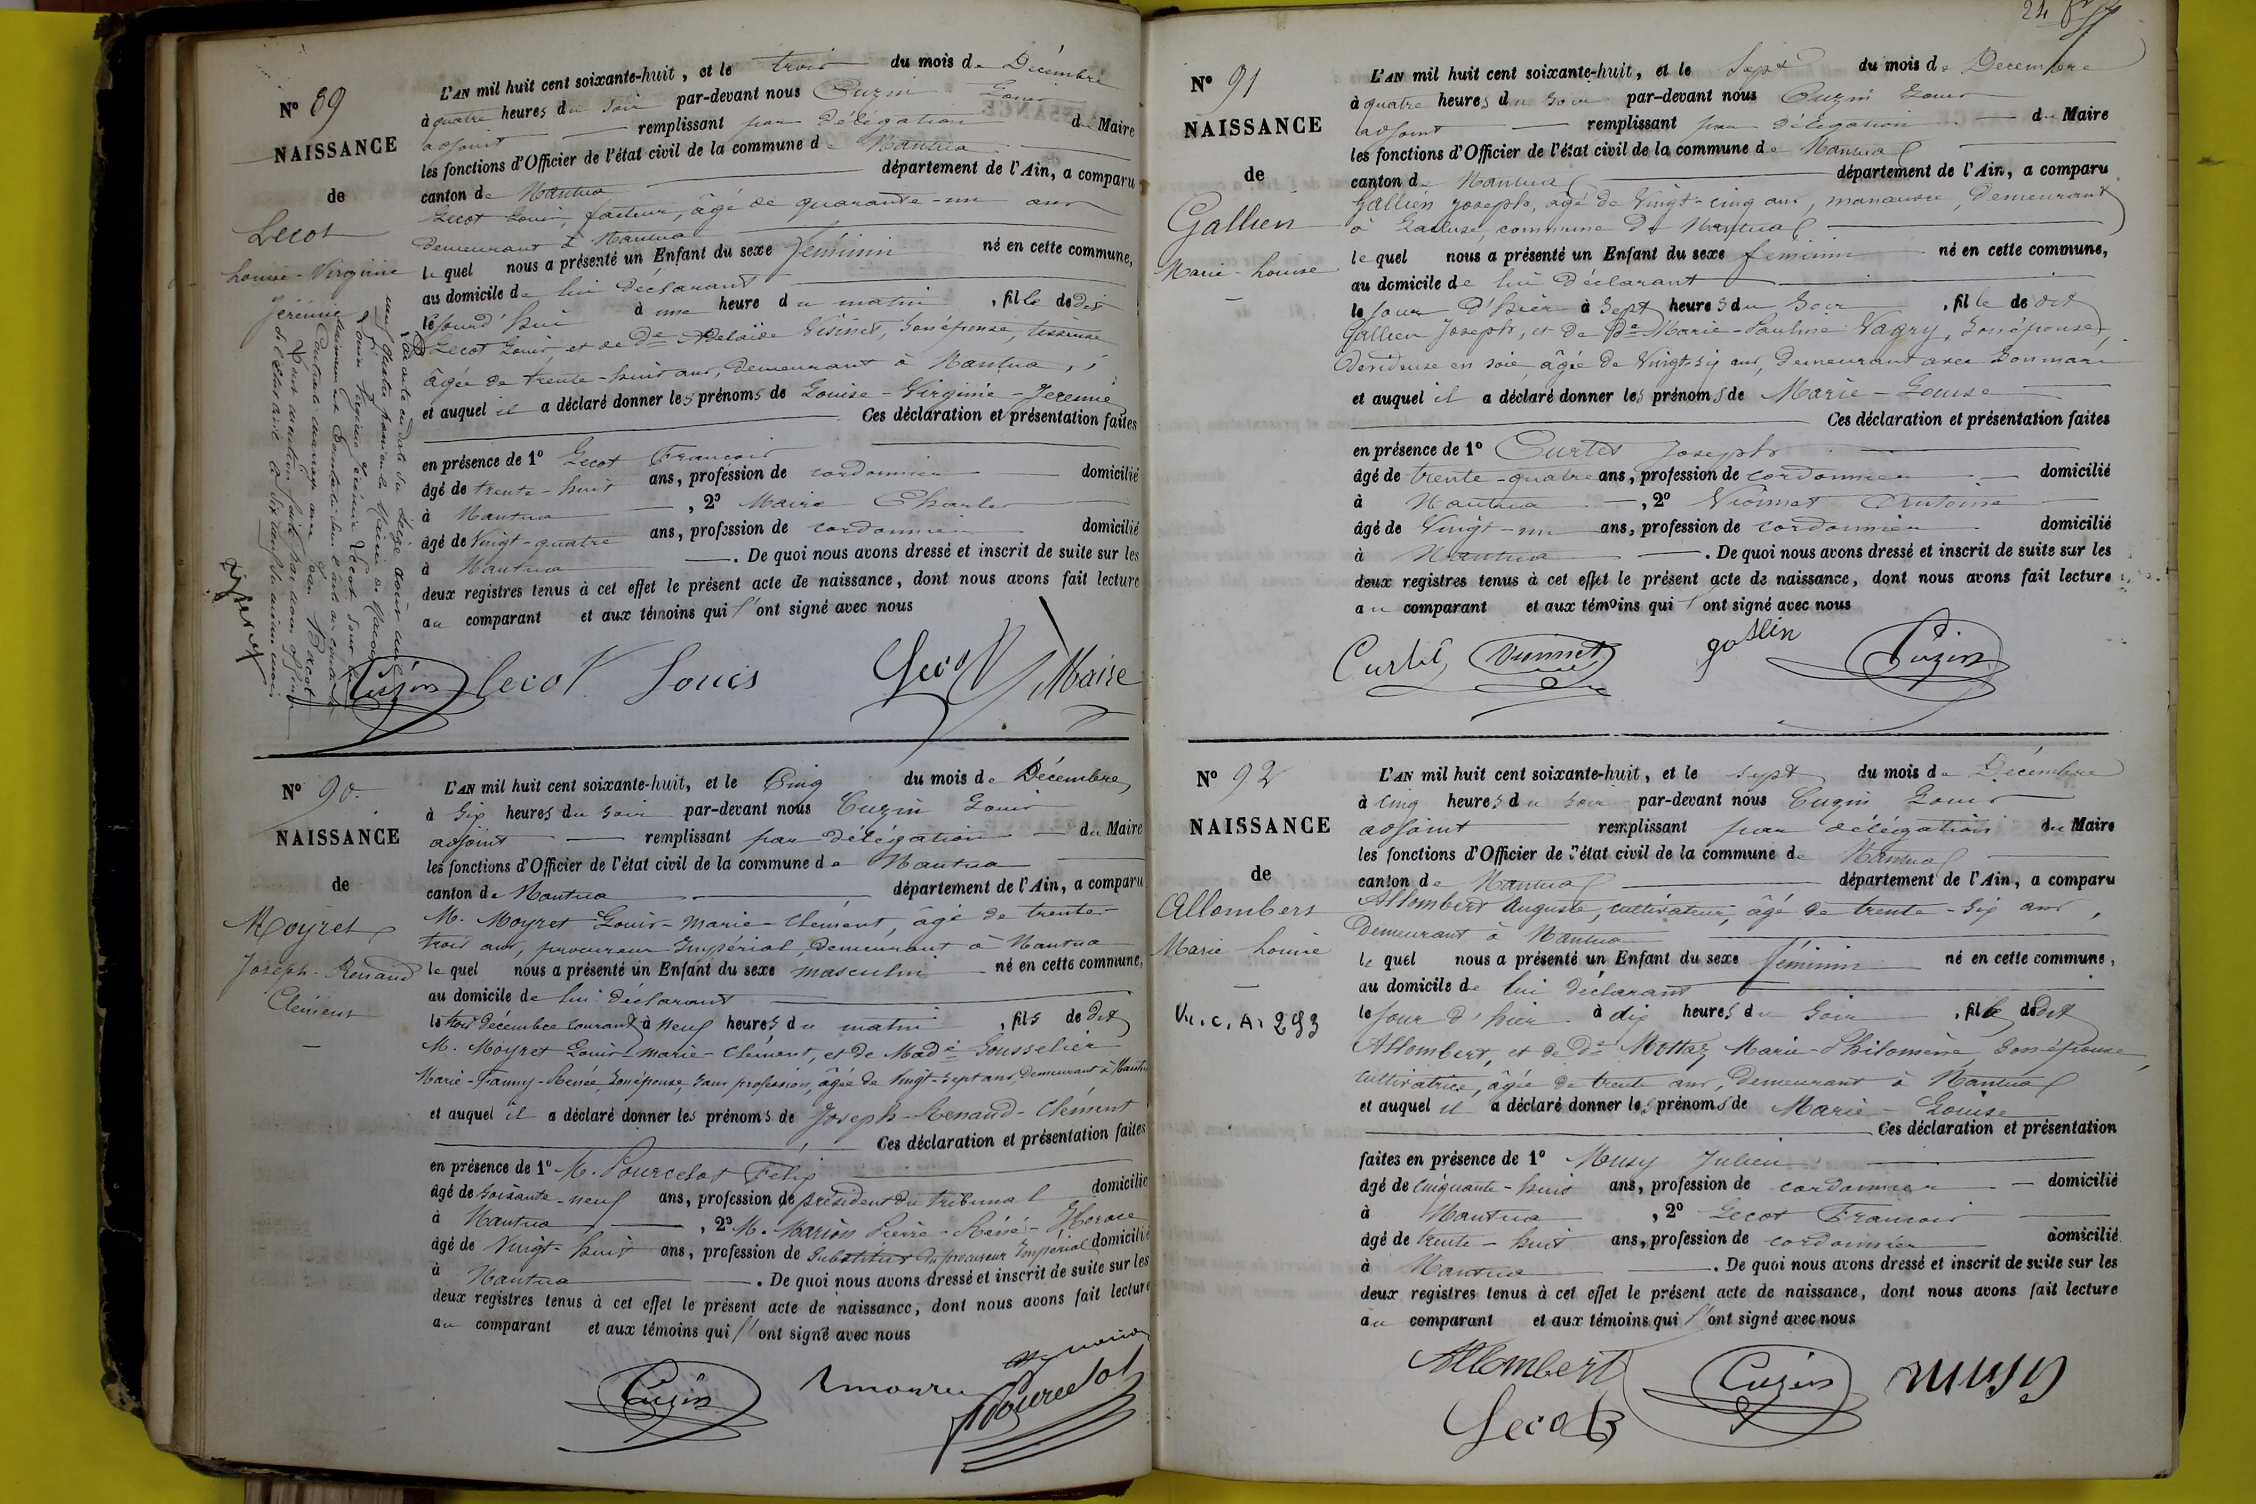 Nº 89
NAISSANCE
de
Lecot
Louise-Virginie
Jérémie
L'AN mil huit cent soixante-huit, et le trois du mois de Décembre
à quatre heures du soir par-devant nous Cuzin Louis
adjoint remplissant par délégation du Maire
les fonctions d'Officier de l'état civil de la commune de Nantua
canton de Nantua département de l'Ain, a comparu
Lecot Louis, facteur, âgé de quarante-un ans
demeurant à Nantua
le quel nous a présenté un Enfant du sexe féminin né en cette commune,
au domicile de lui déclarant
le jourd'hui à une heure du matin, fille de dit
Lecot Louis, et de De Adelaïde, son épouse, tisseuse
âgée de trente-huit ans, demeurant à Nantua
et auquel il a déclaré donner les prénoms de Louise-Virginie-Jeremie
Ces déclaration et présentation faites
en présence de 1º Lecot François
âgé de trente-huit ans, profession de cordonnier domicilié
à Nantua, 2º Maire Charles
âgé de Vingt-quatre ans, profession de cordonnier domicilié
à Nantua. De quoi nous avons dressé et inscrit de suite sur les
deux registres tenus à cet effet le présent acte de naissance, dont nous avons fait lecture
au comparant et aux témoins qui l'ont signé avec nous
Cuzin Lecot Louis Lecot Maire
Nº 90
NAISSANCE
de
Moyret
Joseph-Renaud
Clément
L'AN mil huit cent soixante-huit, et le Cinq du mois de Décembre
à Six heures du soir par-devant nous Cuzin Louis
adjoint remplissant par délégation du Maire
les fonctions d'Officier de l'état civil de la commune de Nantua
canton de Nantua département de l'Ain, a comparu
M. Moyret Louis-Marie-Clément, âgé de trente-
trois ans, procureur Impérial, demeurant à Nantua
le quel nous a présenté un Enfant du sexe masculin né en cette commune,
au domicile de lui déclarant
le trois décembre courant à neuf heures du matin, fils de dit
M. Moyret Louis-Marie-Clément, et de Made Gousselier
Marie-Fanny-Renée, son épouse, sans profession, âgée de Vingt-sept ans, demeurant à Nantua
et auquel il a déclaré donner les prénoms de Joseph-Renaud-Clément
Ces déclaration et présentation faites
en présence de 1º M. Pourcelot Félix
âgé de Soixante-neuf ans, profession de président du tribunal domicilié
à Nantua, 2º M. Marion Pierre-Réné-Horace
âgé de Vingt-huit ans, profession de Substitut du procureur Impérial domicilié
à Nantua. De quoi nous avons dressé et inscrit de suite sur les
deux registres tenus à cet effet le présent acte de naissance, dont nous avons fait lecture
au comparant et aux témoins qui l'ont signé avec nous
Cuzin Marion
Pourcelot
24
Nº 91
NAISSANCE
de
Gallien
Marie-Louise
L'AN mil huit cent soixante-huit, et le Sept du mois de Décembre
à quatre heures du soir par-devant nous Cuzin Louis
adjoint remplissant par délégation du Maire
les fonctions d'Officier de l'état civil de la commune de Nantua
canton de Nantua département de l'Ain, a comparu
Gallien Joseph, âgé de Vingt-cinq ans, manœuvre, demeurant
à, commune de Nantua
le quel nous a présenté un Enfant du sexe féminin né en cette commune,
au domicile de lui déclarant
le jour d'hier à Sept heures du Soir, fille de dit
Gallien Joseph, et de De Marie-Pauline Vagry, son épouse,
dévideuse en soie âgée de Vingt-six ans, demeurant avec son mari
et auquel il a déclaré donner les prénoms de Marie-Louise
Ces déclaration et présentation faites
en présence de 1º Curtet Joseph
âgé de trente-quatre ans, profession de cordonnier domicilié
à Nantua, 2º Vionnet Antoine
âgé de Vingt-un ans, profession de cordonnier domicilié
à Nantua. De quoi nous avons dressé et inscrit de suite sur les
deux registres tenus à cet effet le présent acte de naissance, dont nous avons fait lecture
au comparant et aux témoins qui l'ont signé avec nous
Curtet Vuinnet Cuzin
Nº 92
NAISSANCE
de
Allombert
Marie Louise
Vu. C. A. 293
L'AN mil huit cent soixante-huit, et le sept du mois de Décembre
à cinq heures du soir par-devant nous Cuzin Louis
adjoint remplissant par délégation du Maire
les fonctions d'Officier de l'état civil de la commune de Nantua
canton de Nantua département de l'Ain, a comparu
Allombert Auguste, cultivateur, âgé de trente-six ans,
demeurant à Nantua
le quel nous a présenté un Enfant du sexe féminin né en cette commune,
au domicile de lui déclarant
le jour d'hier à dix heures du Soir, fille de dit
Allombert, et de De Mottaz Marie-Philomène, son épouse,
cultivatrice, âgée de trente ans, demeurant à Nantua
et auquel il a déclaré donner les prénoms de Marie-Louise
Ces déclaration et présentation
faites en présence de 1º Musy Julien
âgé de Cinquante-huit ans, profession de cordonnier domicilié
à Nantua, 2º Lecot François
âgé de trente-huit ans, profession de cordonnier domicilié
à Nantua. De quoi nous avons dressé et inscrit de suite sur les
deux registres tenus à cet effet le présent acte de naissance, dont nous avons fait lecture
au comparant et aux témoins qui l'ont signé avec nous
Allombert Cuzin musy
Lecot